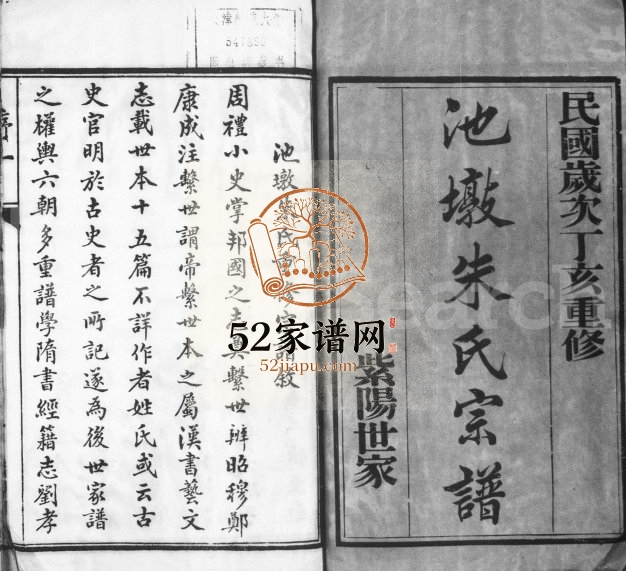 民國歲次丁亥重修
池墩朱氏宗譜
紫陽世家
池墩朱氏重修宗譜敘
周禮小史掌邦國之志奠繫世辨昭穆鄭
康成注繫世謂帝繫世本之屬漢書藝文
志載世本十五篇不詳作者姓氏或云古
史官明於古史者之所記遂為後世家譜
之權輿六朝多重譜學隋書經籍志劉孝
547855
52家谱网
52jiapu.com